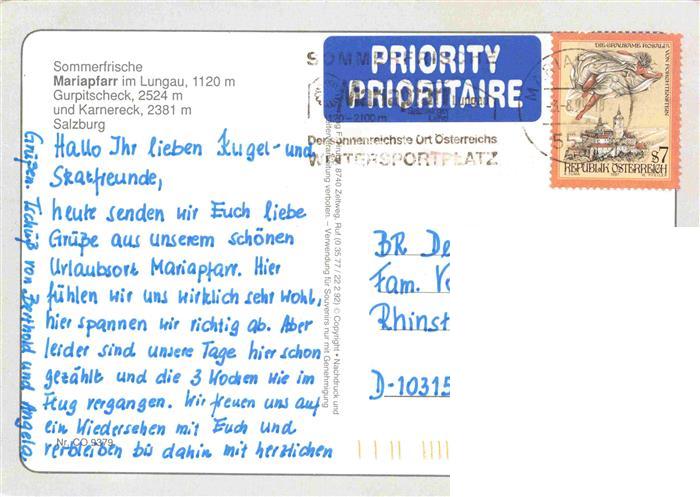 Sommerfrische
Mariapfarr im Lungau, 1120 m
Gurpitscheck, 2524 m
und Karnereck, 2381 m
Salzburg
Hallo Ihr lieben Kugel- und
Skatfreunde,
heute senden wir Euch liebe
Grüße aus unserem schönen
Urlaubsort Mariapfarr. Hier
fühlen wir uns wirklich sehr wohl,
hier spannen wir richtig ab. Aber
leider sind unsere Tage hier schon
gezählt und die 3 Wochen wie im
Flug vergangen. Wir freuen uns auf
ein Wiedersehen mit Euch und
verbleiben bis dahin mit herzlichen
Grüßen. Tschüß von Berthold und Angela
Nr. CO 9379
8740 Zeltweg, Ruf (0 35 77 / 22 2 92) © Copyright • Nachdruck und
verboten. – Verwendung für Souvenirs nur mit Genehmigung
PRIORITY
PRIORITAIRE
SOMMERFRISCHE
1120-2100 m
Der sonnenreichste Ort Österreichs
WINTERSPORTPLATZ
DIE GRAUSAME ROSALIA
VON FORCHTENSTEIN
S7
REPUBLIK ÖSTERREICH
BR De
Fam. Ve
Rhinst
D-10315